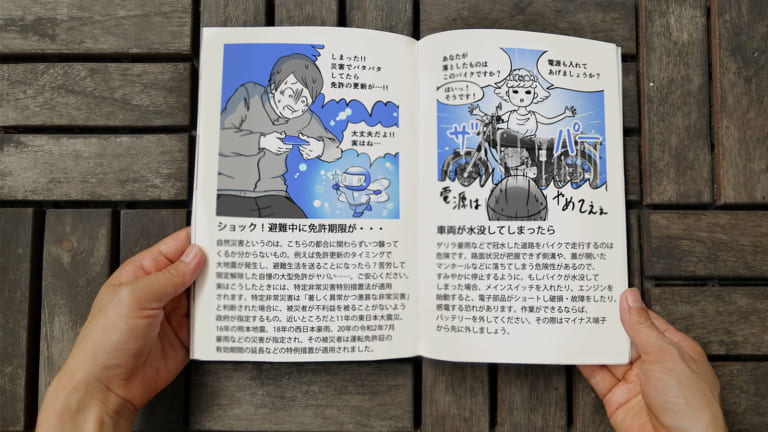 しまった!!
災害でバタバタ
してたら
免許の更新が…!!
大丈夫だよ!!
実はね…
ショック！避難中に免許期限が・・・
自然災害というのは、こちらの都合に関わらずいつ襲って
くるか分からないもの。例えば免許更新のタイミングで
大地震が発生し、避難生活を送ることになったら？苦労して
限定解除した自慢の大型免許がヤバい……。ご安心ください。
実はこうしたときには、特定非常災害特別措置法が適用
されます。特定非常災害は「著しく異常かつ激甚な非常災害」
と判断された場合に、被災者が不利益を被ることがないよう
政府が指定するもの。近いところだと11年の東日本大震災、
16年の熊本地震、18年の西日本豪雨、20年の令和2年7月
豪雨などの災害が指定され、その被災者は運転免許証の
有効期間の延長などの特例措置が適用されました。
あなたが
落としたものは
このバイクですか？
電源も入れて
あげましょうか？
はいっ！
そうです！
ザパー
電源は
やめてえぇ
車両が水没してしまったら
ゲリラ豪雨などで冠水した道路をバイクで走行するのは
危険です。路面状況が把握できず側溝や、蓋が開いた
マンホールなどに落ちてしまう危険性があるので、
すみやかに停止するように。もしバイクが水没して
しまった場合、メインスイッチを入れたり、エンジンを
始動すると、電子部品がショートし破損・故障をしたり、
感電する恐れがあります。作業ができるならば、
バッテリーを外してください。その際はマイナス端子
から先に外しましょう。